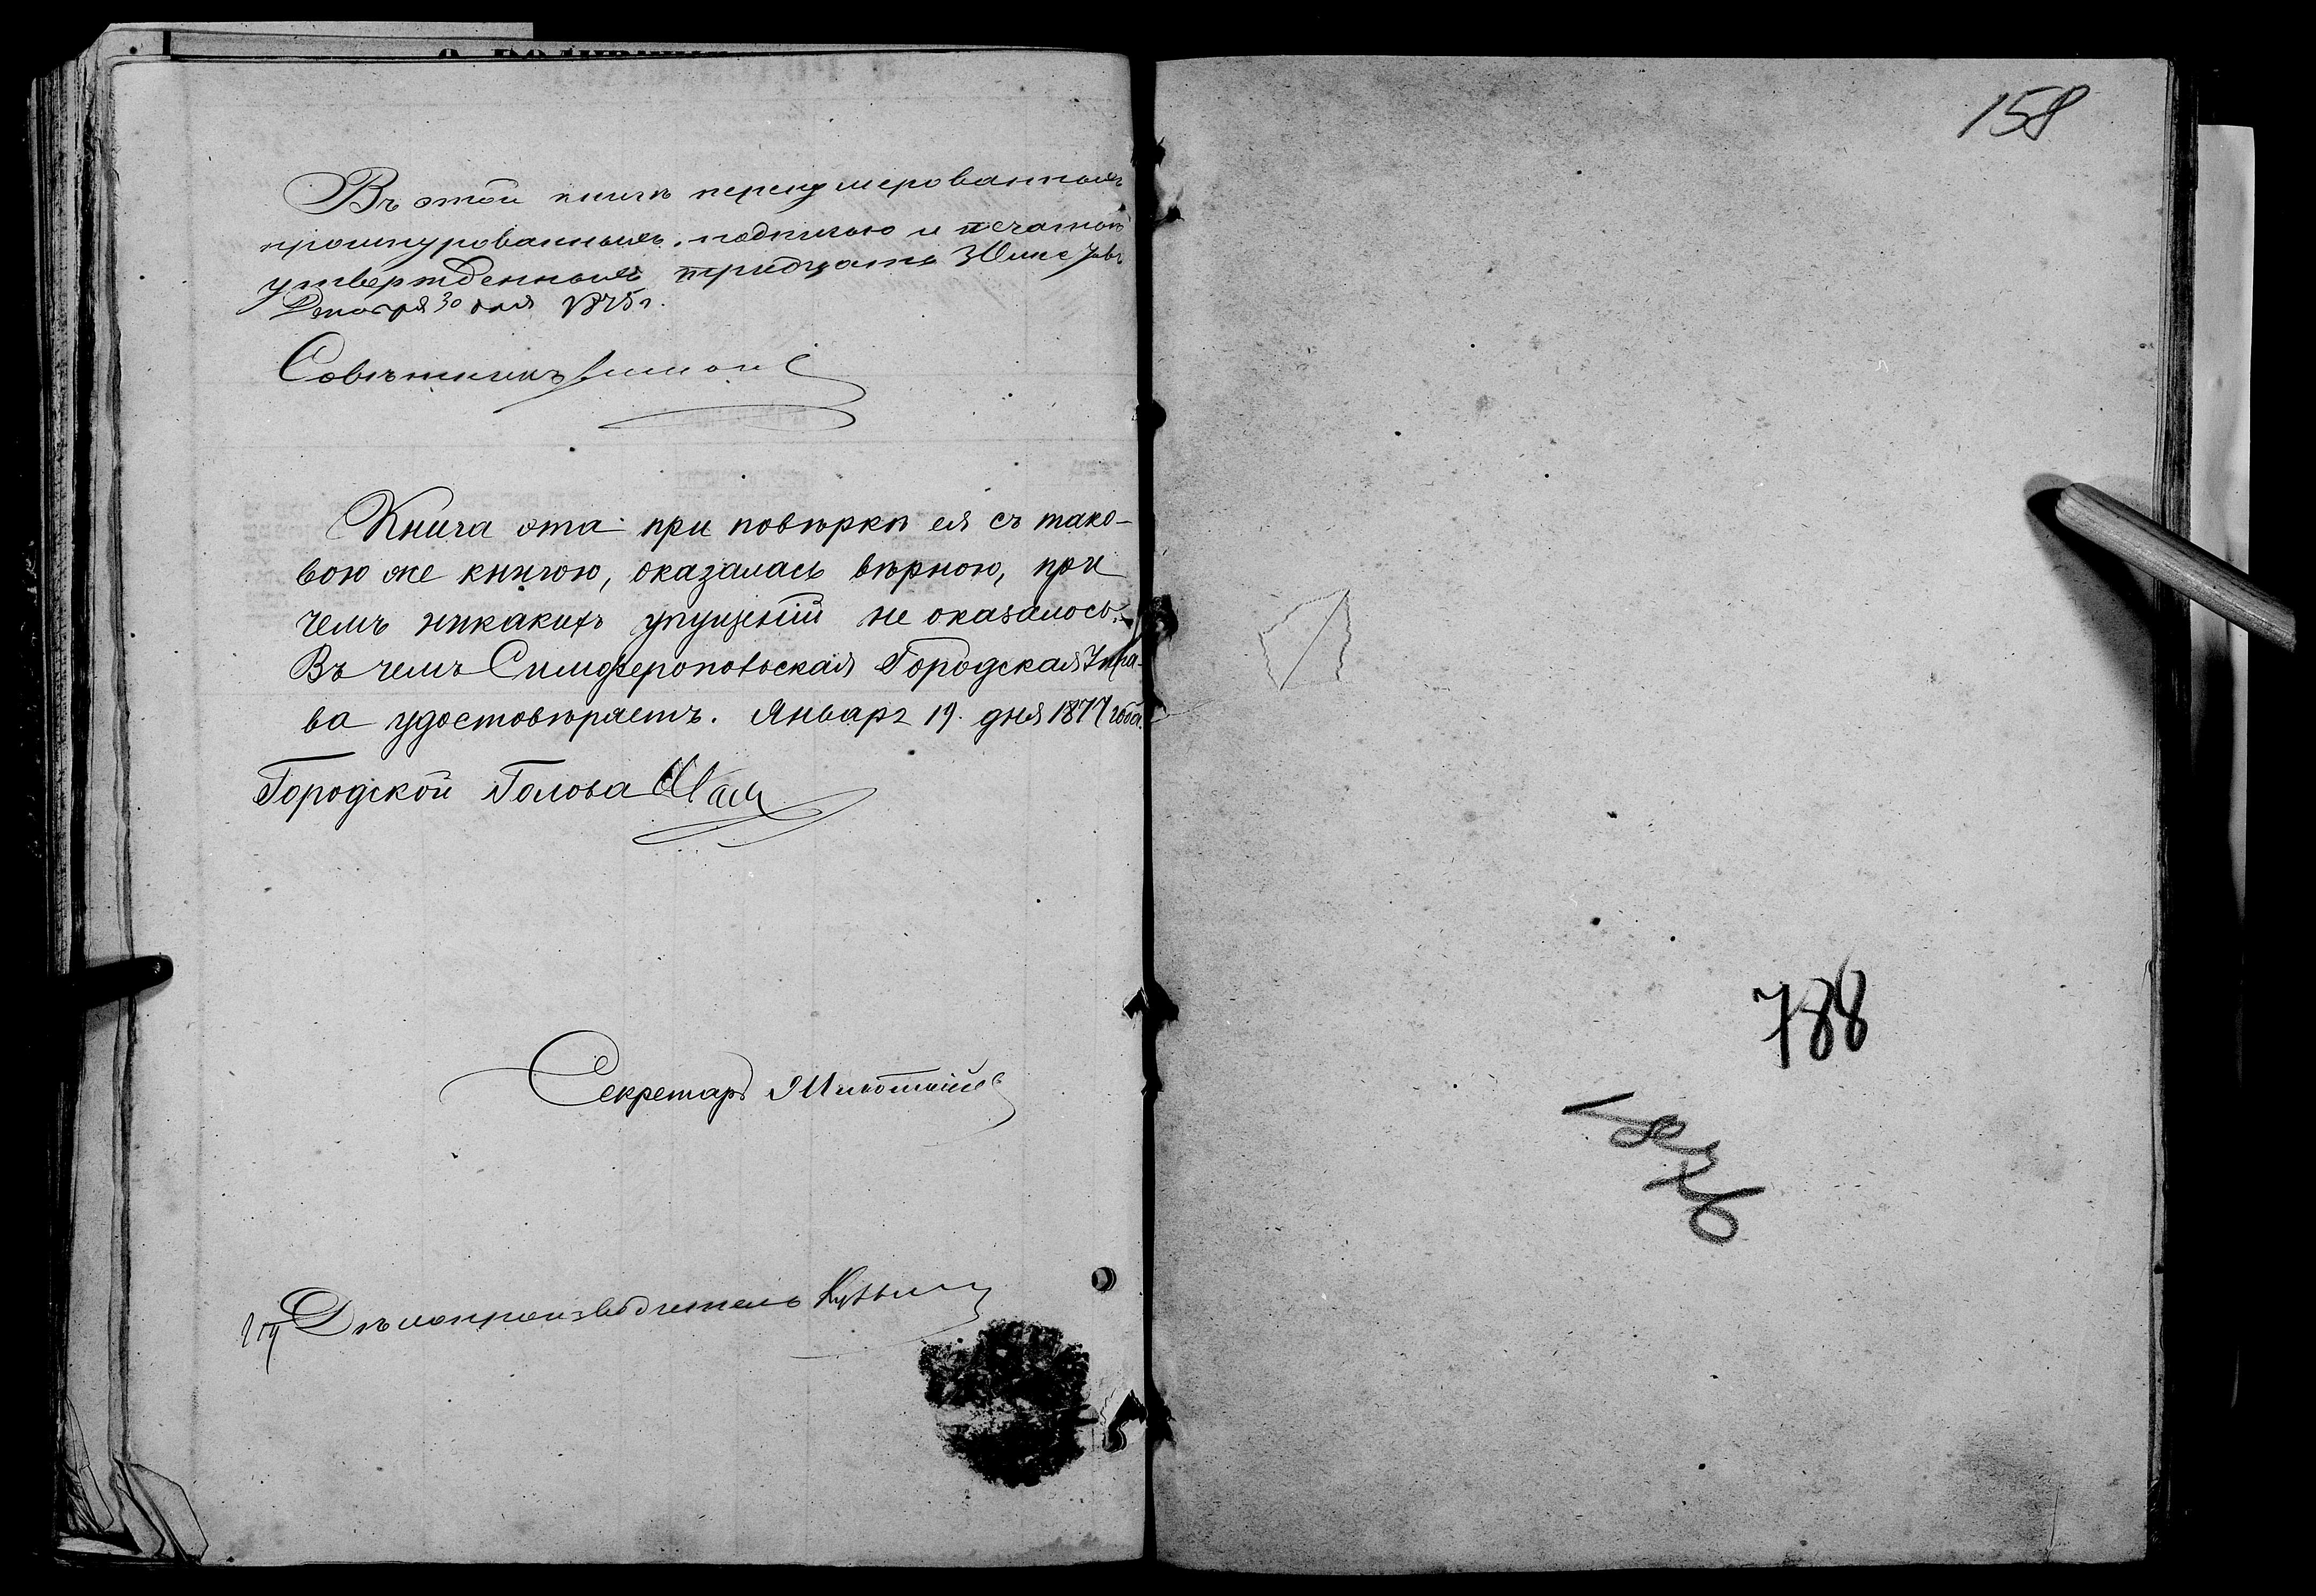 Въ этой книгѣ перенумерованныхъ
прошнурованныхъ, подписью и печатью
утвержденныхъ тридцать
Декабря 30 дня 1875 г.
Совѣтникъ
Книга эта при повѣркѣ ея съ тако-
вою же книгою, оказалась вѣрною, при
чемъ никакихъ упущеній не оказалось.
Въ чемъ Симферопольская Городская Упра-
ва удостовѣряетъ. Января 19 дня 1877 года.
Городской Голова
Секретарь
Дѣлопроизводитель
158
788